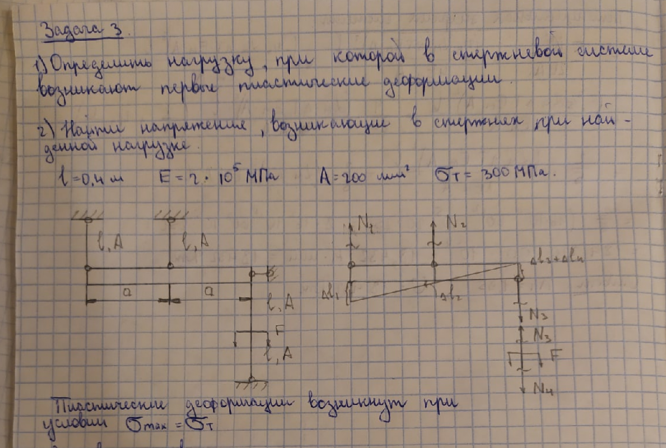 Задача 3
1) Определить нагрузку, при которой в стержневой системе
возникают первые пластические деформации.
2) Найти напряжение, возникающие в стержнях, при най-
денной нагрузке.
l = 0,4 м E = 2 · 10⁵ МПа A = 200 мм² σт = 300 МПа.
l, A l, A N₁ N₂
a a l, A Δl₁ Δl₂ Δl₃+Δl₄
F N₃
l, A N₃ F
N₄
Пластические деформации возникнут при
условии σmax = σт